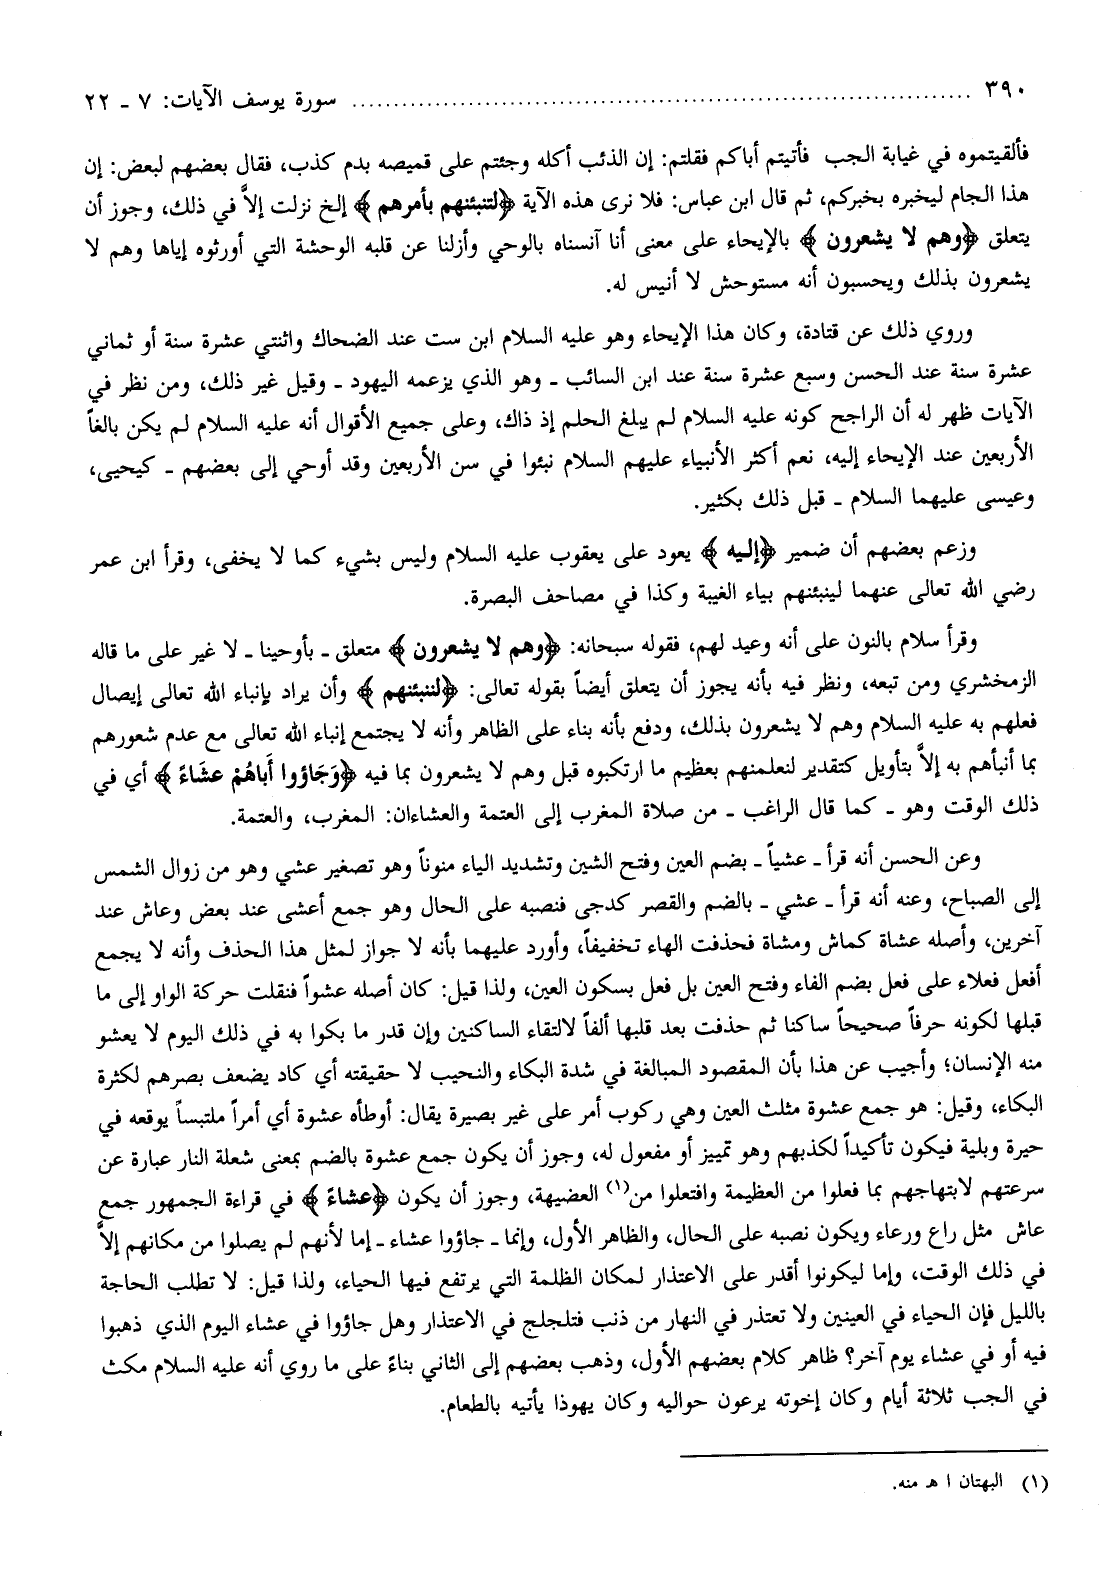 ٣٩٠ ........................ سورة يوسف الآيات: ٧ ـ ٢٢
فألقيتموه في غيابة الجب فأتيتم أباكم فقلتم: إن الذئب أكله وجئتم على قميصه بدم كذب، فقال بعضهم لبعض: إن
هذا الجام ليخبره بخبركم، ثم قال ابن عباس: فلا نرى هذه الآية ﴿لتنبئنهم بأمرهم﴾ إلخ نزلت إلاَّ في ذلك، وجوز أن
يتعلق ﴿وهم لا يشعرون﴾ بالإيحاء على معنى أنا آنسناه بالوحي وأزلنا عن قلبه الوحشة التي أورثوه إياها وهم لا
يشعرون بذلك ويحسبون أنه مستوحش لا أنيس له.
وروي ذلك عن قتادة، وكان هذا الإيحاء وهو عليه السلام ابن ست عند الضحاك واثنتي عشرة سنة أو ثماني
عشرة سنة عند الحسن وسبع عشرة سنة عند ابن السائب ـ وهو الذي يزعمه اليهود ـ وقيل غير ذلك، ومن نظر في
الآيات ظهر له أن الراجح كونه عليه السلام لم يبلغ الحلم إذ ذاك، وعلى جميع الأقوال أنه عليه السلام لم يكن بالغاً
الأربعين عند الإيحاء إليه، نعم أكثر الأنبياء عليهم السلام نبئوا في سن الأربعين وقد أوحي إلى بعضهم ـ كيحيى،
وعيسى عليهما السلام ـ قبل ذلك بكثير.
وزعم بعضهم أن ضمير ﴿إليه﴾ يعود على يعقوب عليه السلام وليس بشيء كما لا يخفى، وقرأ ابن عمر
رضي الله تعالى عنهما لينبئنهم بياء الغيبة وكذا في مصاحف البصرة.
وقرأ سلام بالنون على أنه وعيد لهم، فقوله سبحانه: ﴿وهم لا يشعرون﴾ متعلق ـ بأوحينا ـ لا غير على ما قاله
الزمخشري ومن تبعه، ونظر فيه بأنه يجوز أن يتعلق أيضاً بقوله تعالى: ﴿لننبئنهم﴾ وأن يراد بإنباء الله تعالى إيصال
فعلهم به عليه السلام وهم لا يشعرون بذلك، ودفع بأنه بناء على الظاهر وأنه لا يجتمع إنباء الله تعالى مع عدم شعورهم
بما أنبأهم به إلاَّ بتأويل كتقدير لنعلمنهم بعظيم ما ارتكبوه قبل وهم لا يشعرون بما فيه ﴿وَجَاؤوا أَباهُمْ عشَاءً﴾ أي في
ذلك الوقت وهو ـ كما قال الراغب ـ من صلاة المغرب إلى العتمة والعشاءان: المغرب، والعتمة.
وعن الحسن أنه قرأ ـ عشياً ـ بضم العين وفتح الشين وتشديد الياء منوناً وهو تصغير عشي وهو من زوال الشمس
إلى الصباح، وعنه أنه قرأ ـ عشي ـ بالضم والقصر كدجى فنصبه على الحال وهو جمع أعشى عند بعض وعاش عند
آخرين، وأصله عشاة كماش ومشاة فحذفت الهاء تخفيفاً، وأورد عليهما بأنه لا جواز لمثل هذا الحذف وأنه لا يجمع
أفعل فعلاء على فعل بضم الفاء وفتح العين بل فعل بسكون العين، ولذا قيل: كان أصله عشواً فنقلت حركة الواو إلى ما
قبلها لكونه حرفاً صحيحاً ساكنا ثم حذفت بعد قلبها ألفاً لالتقاء الساكنين وإن قدر ما بكوا به في ذلك اليوم لا يعشو
منه الإنسان؛ وأجيب عن هذا بأن المقصود المبالغة في شدة البكاء والنحيب لا حقيقته أي كاد يضعف بصرهم لكثرة
البكاء، وقيل: هو جمع عشوة مثلث العين وهي ركوب أمر على غير بصيرة يقال: أوطأه عشوة أي أمراً ملتبساً يوقعه في
حيرة وبلية فيكون تأكيداً لكذبهم وهو تمييز أو مفعول له، وجوز أن يكون جمع عشوة بالضم بمعنى شعلة النار عبارة عن
سرعتهم لابتهاجهم بما فعلوا من العظيمة وافتعلوا من(١) العضيهة، وجوز أن يكون ﴿عشاءً﴾ في قراءة الجمهور جمع
عاش مثل راع ورعاء ويكون نصبه على الحال، والظاهر الأول، وإنما ـ جاؤوا عشاء ـ إما لأنهم لم يصلوا من مكانهم إلاَّ
في ذلك الوقت، وإما ليكونوا أقدر على الاعتذار لمكان الظلمة التي يرتفع فيها الحياء، ولذا قيل: لا تطلب الحاجة
بالليل فإن الحياء في العينين ولا تعتذر في النهار من ذنب فتلجلج في الاعتذار وهل جاؤوا في عشاء اليوم الذي ذهبوا
فيه أو في عشاء يوم آخر؟ ظاهر كلام بعضهم الأول، وذهب بعضهم إلى الثاني بناءً على ما روي أنه عليه السلام مكث
في الجب ثلاثة أيام وكان إخوته يرعون حواليه وكان يهوذا يأتيه بالطعام.
(١) البهتان ا هـ منه.